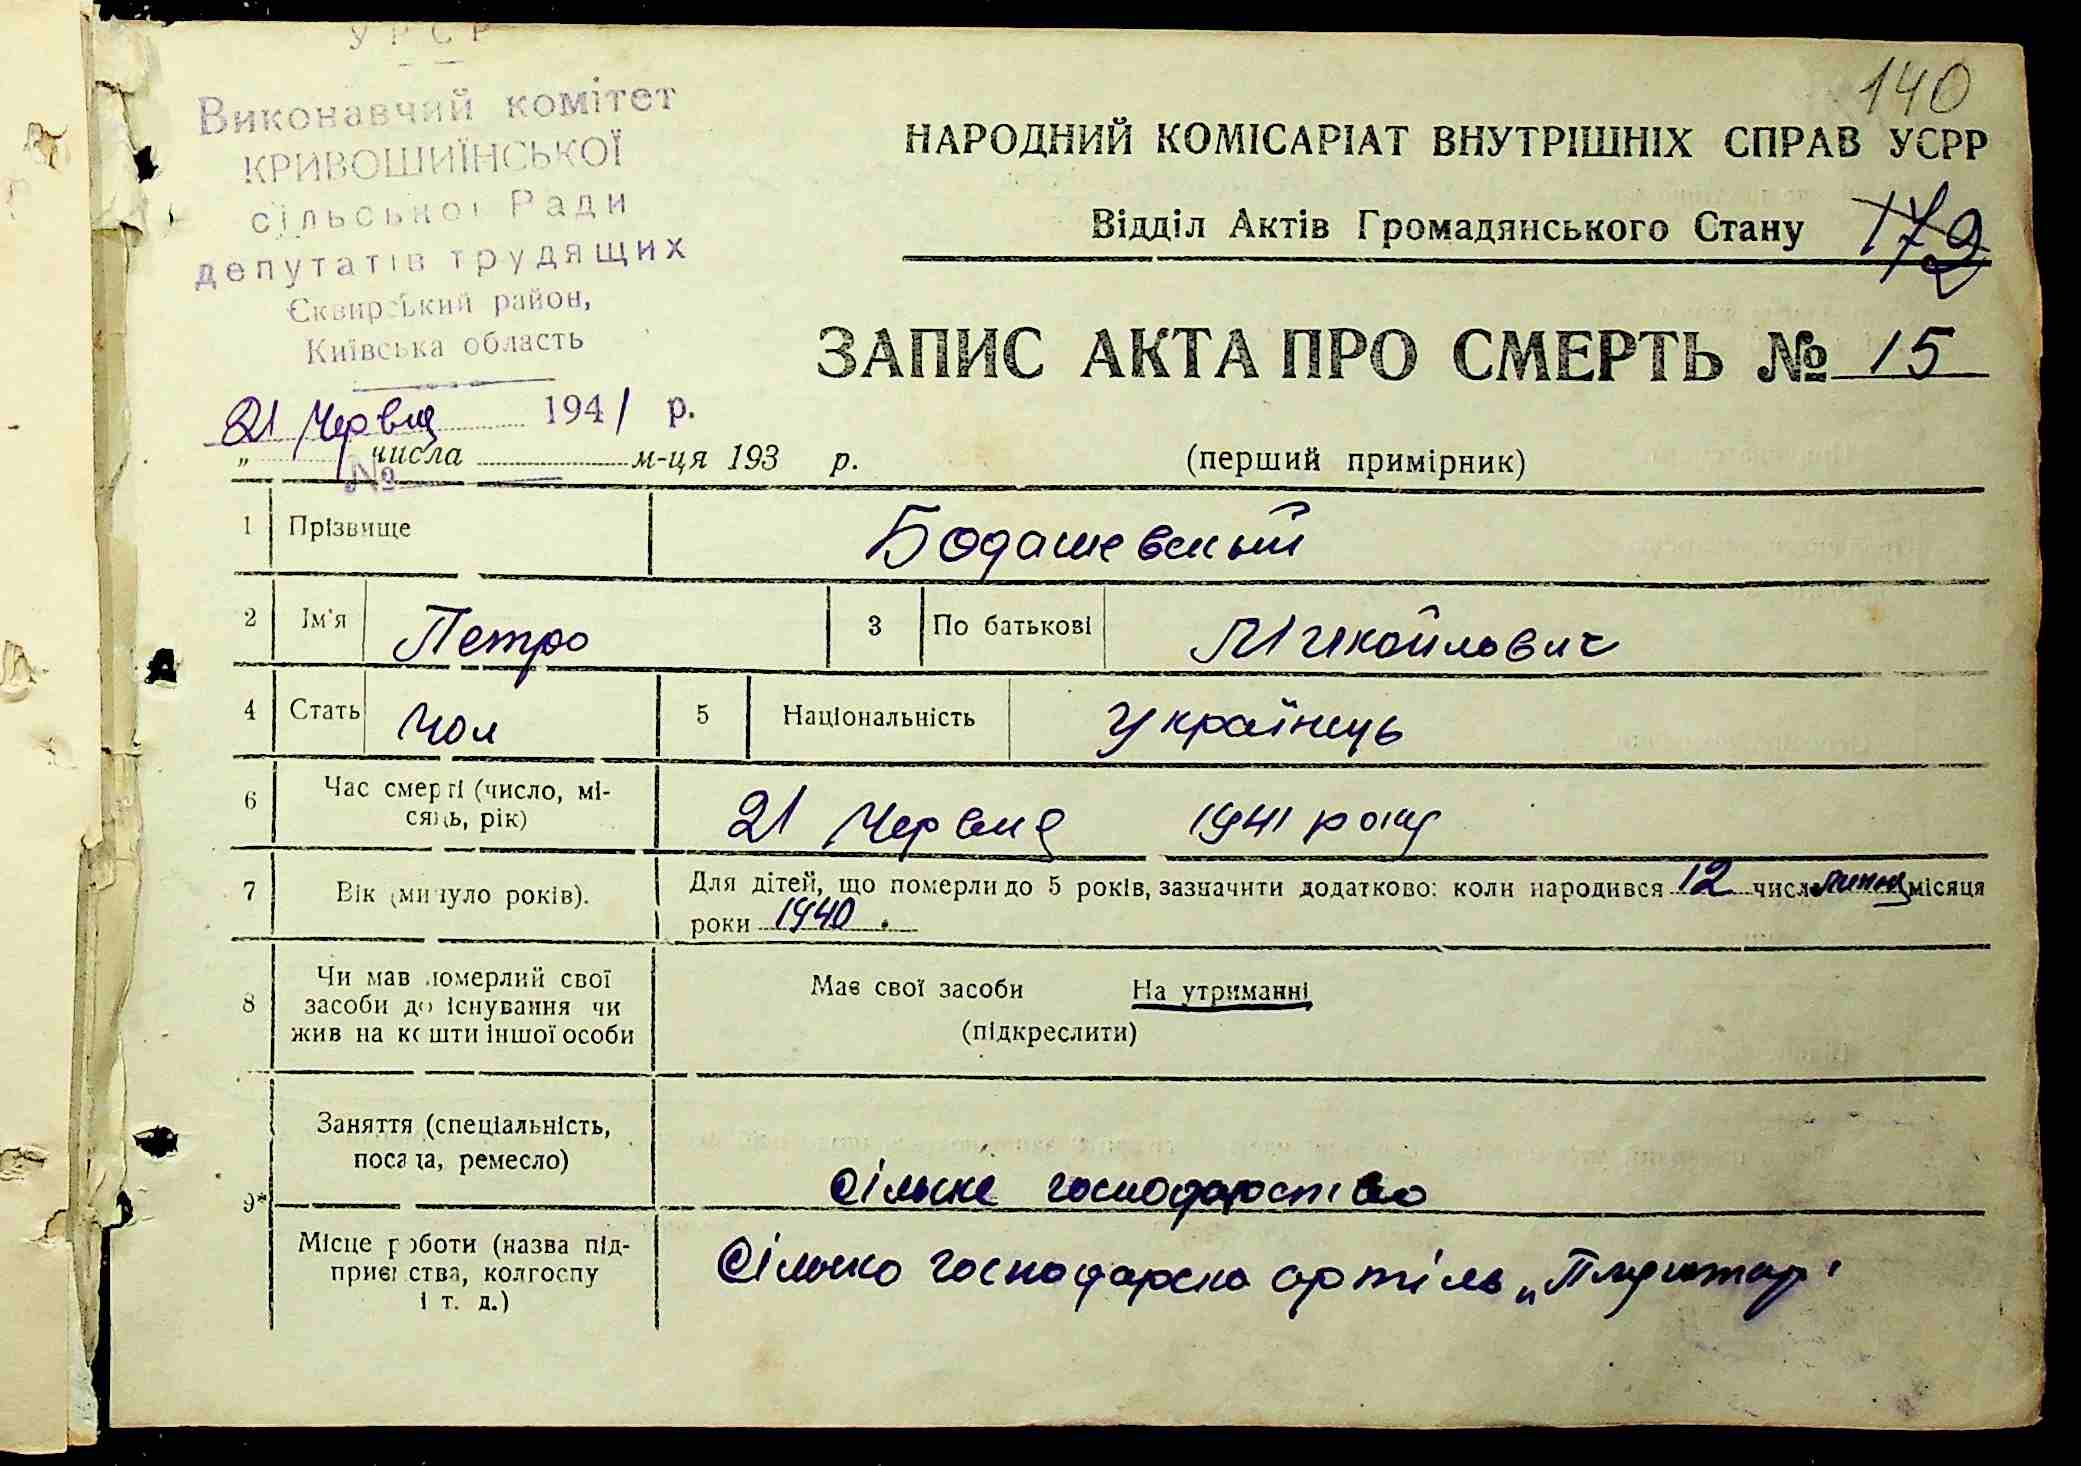 УРСР
Виконавчий комітет
КРИВОШИЇНСЬКОЇ
сільської Ради
депутатів трудящих
Сквирський район,
Київська область
21 Червня 1941 р.
№
140
НАРОДНИЙ КОМІСАРІАТ ВНУТРІШНІХ СПРАВ УСРР
Відділ Актів Громадянського Стану 172
ЗАПИС АКТА ПРО СМЕРТЬ № 15
„ числа м-ця 193 р. (перший примірник)
1 Прізвище Бодашевський
2 Ім'я Петро 3 По батькові Міхкойлович
4 Стать Чол 5 Національність Українець
6 Час смерті (число, мі-
сяць, рік) 21 Червня 1941 року
7 Вік (минуло років). Для дітей, що померли до 5 років, зазначити додатково: коли народився 12 числа липня місяця
роки 1940.
8 Чи мав померлий свої
засоби до існування чи
жив на кошти іншої особи
Має свої засоби На утриманні
(підкреслити)
9* Заняття (спеціальність,
посада, ремесло) Сільске господарство
Місце роботи (назва під-
приємства, колгоспу
і т. д.) Сільско господарска артіль